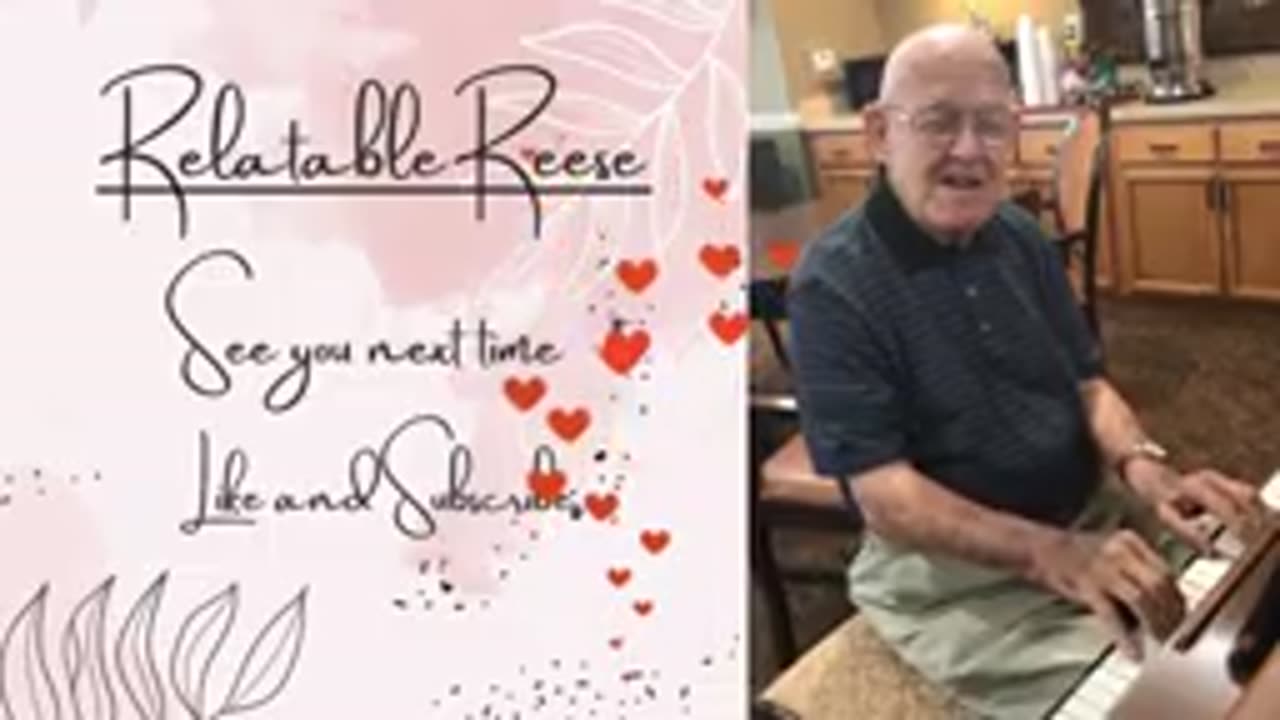 Relatable Reese
See you next time
Like and Subscribe